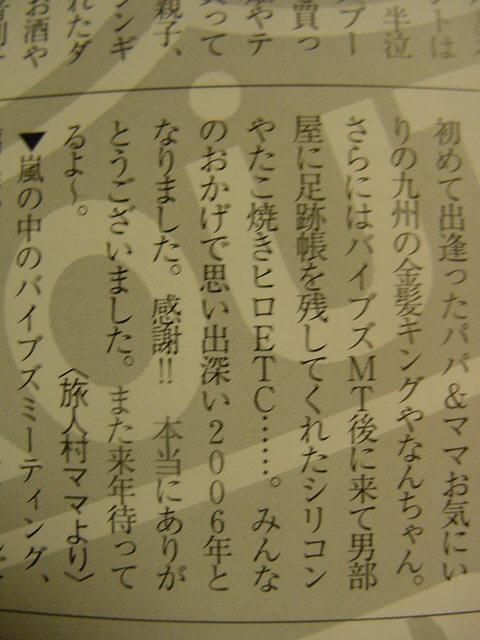 ントは
半泣
スブー
買っ
層やテ
買って
親子、
ンンギ
れたダ
お酒や
初めて出逢ったパパ&ママお気にい
りの九州の金髪キングやなんちゃん。
さらにはバイブズMT後に来て男部
屋に足跡帳を残してくれたシリコン
やたこ焼きヒロETC……。みんな
のおかげで思い出深い2006年と
なりました。感謝!! 本当にありが
とうございました。また来年待って
るよ〜。 〈旅人村ママより〉
▼嵐の中のバイブズミーティング、